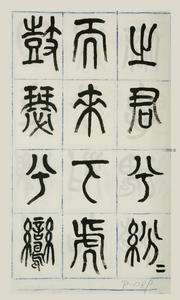 之君兮紛〻
而來下虎
鼓瑟兮鸞